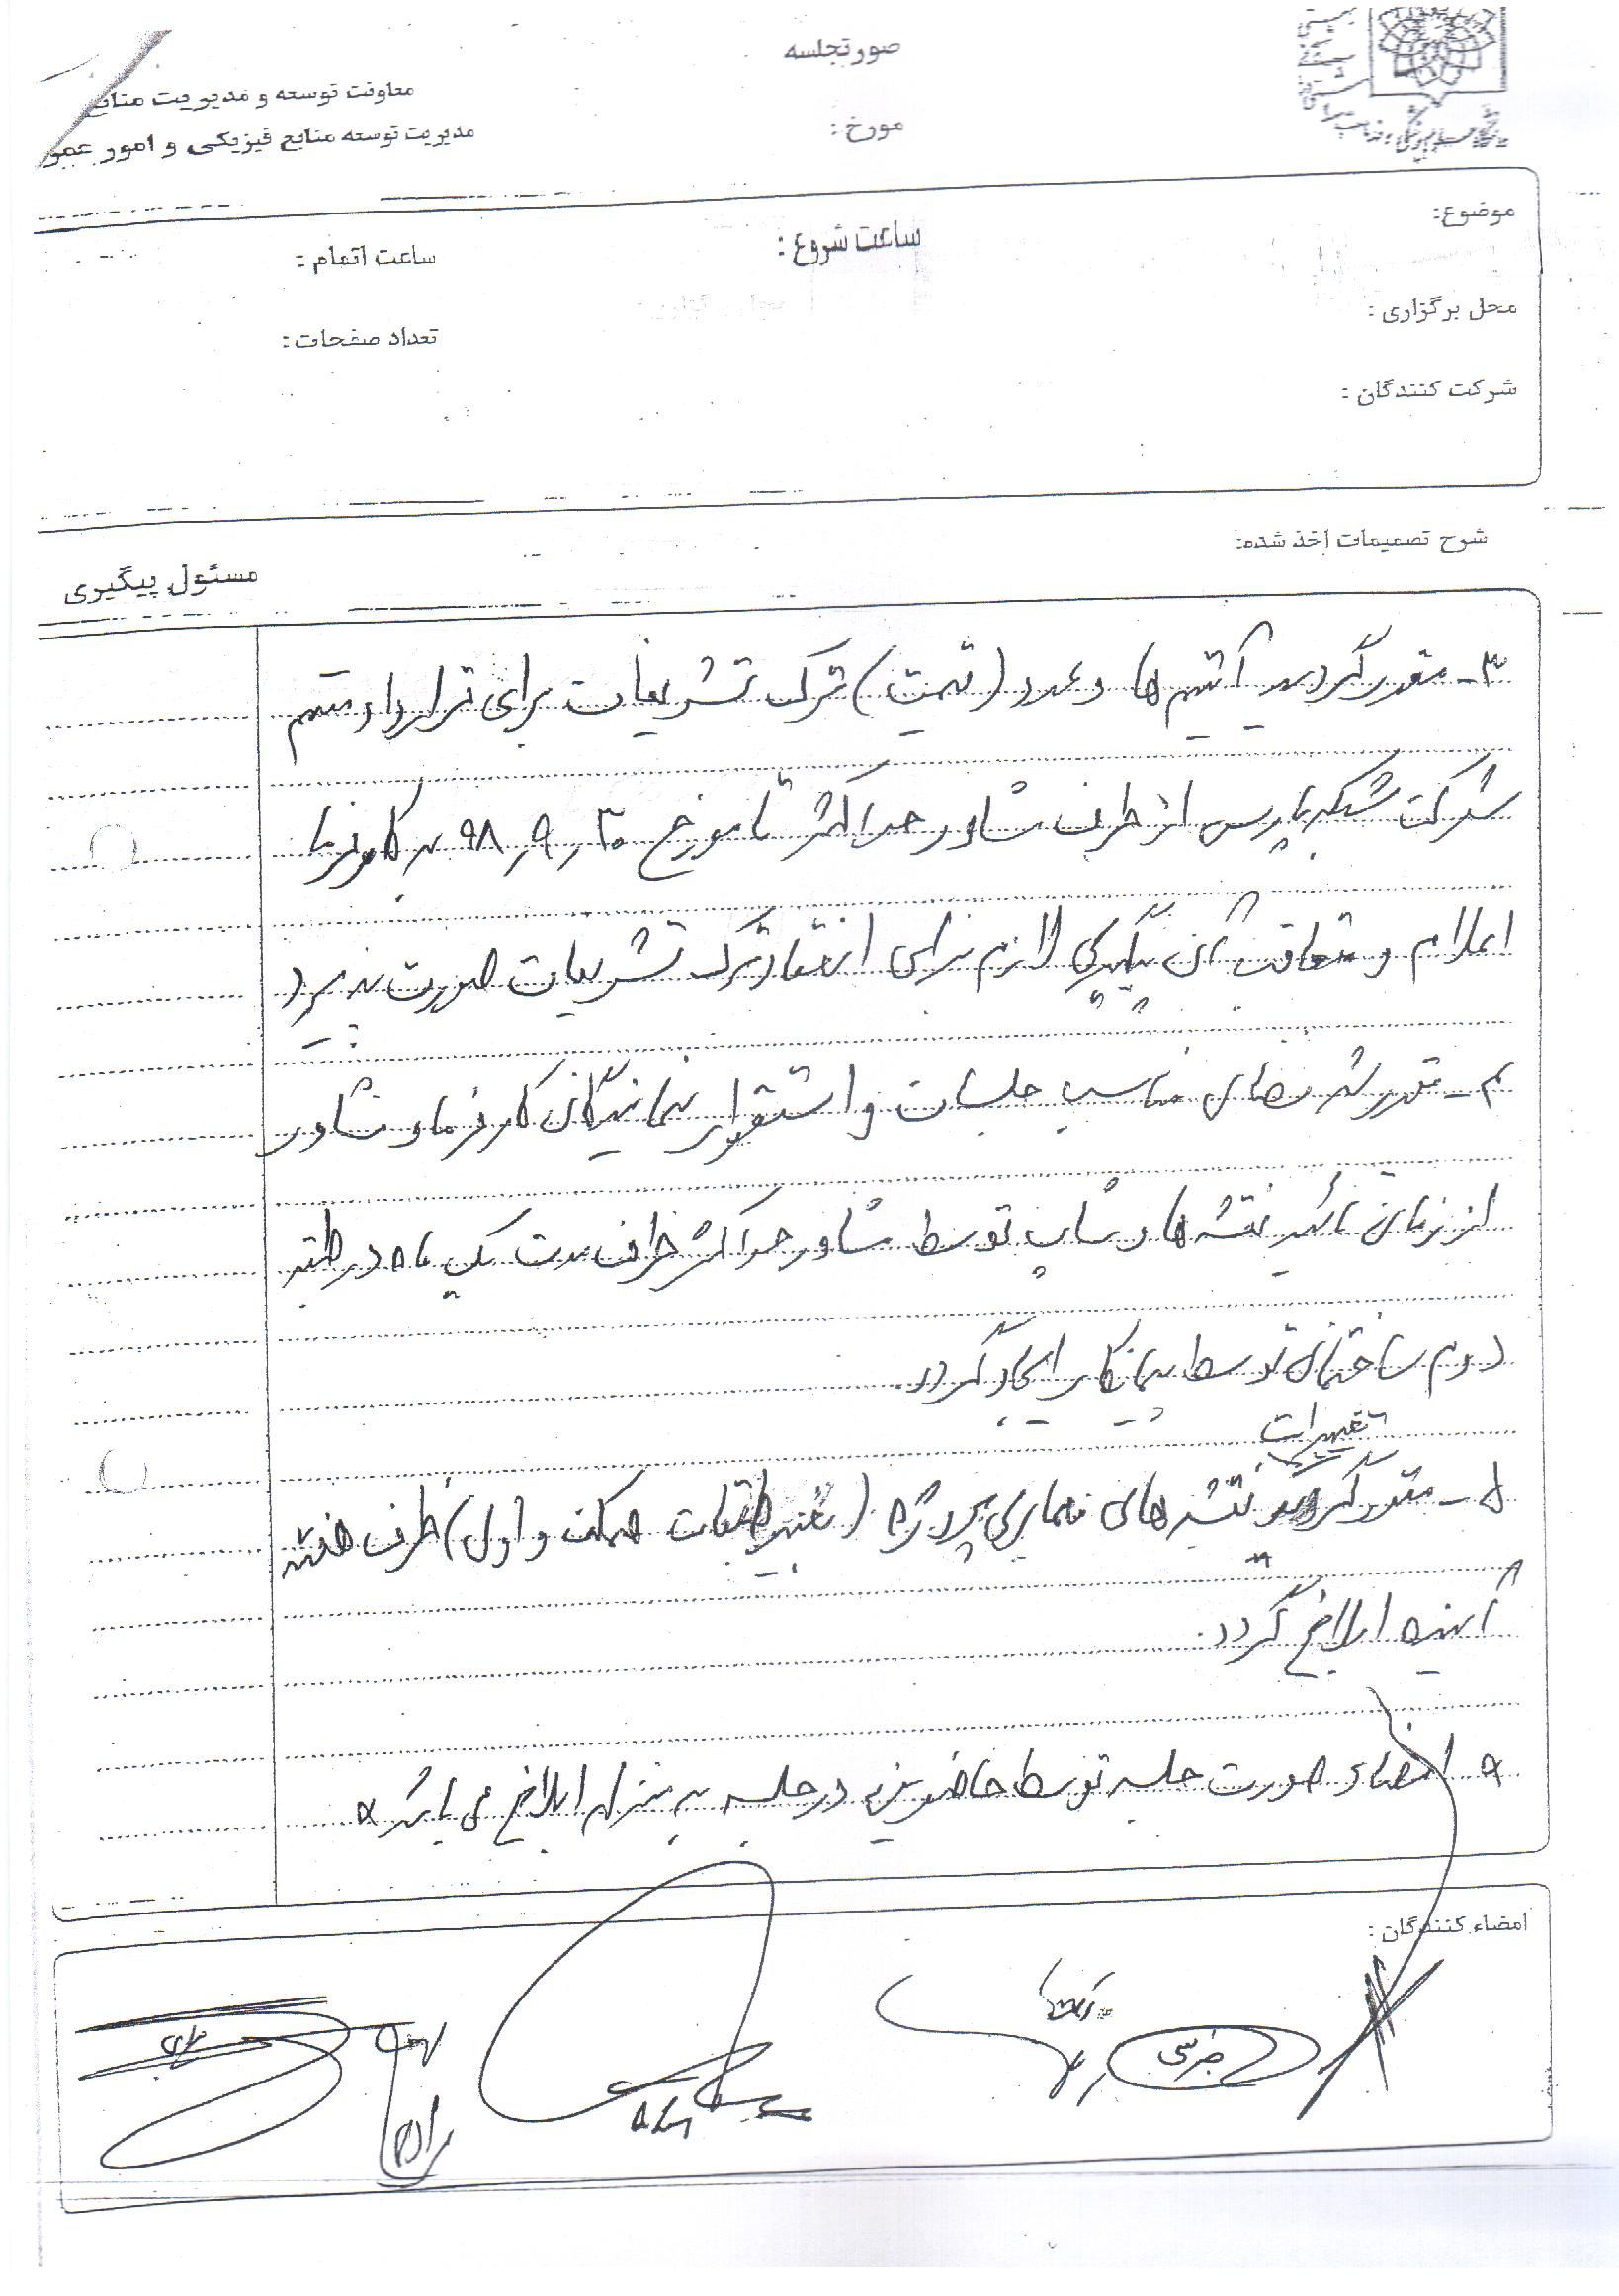 صورتجلسه
مورخ :
معاونت توسعه و مدیریت منابع
مدیریت توسعه منابع فیزیکی و امور عمو
موضوع:
ساعت شروع :
ساعت اتمام :
محل برگزاری :
تعداد صفحات :
شرکت کنندگان :
شرح تصمیمات اخذ شده:
مسئول پیگیری
۳- مقرر گردید آیتم ها و عدد (قیمت) ترک تشریفات برای قرارداد متمم
شرکت از طرف مشاور حداکثر تا مورخ ۹۸٫۹٫۳۰ به کارفرما
اعلام و متعاقب آن پیگیری لازم برای انعقاد ترک تشریفات صورت پذیرد
۴- مقرر شد فضای مناسب جلسات و استقرار نمایندگان کارفرما و مشاور
از زمان تأئید نقشه ها و شاپ توسط مشاور حداکثر ظرف مدت یک ماه در طبقه
دوم ساختمان توسط پیمانکار ایجاد گردد.
تغییرات
۵- مقرر گردید نقشه های معماری پروژه (تغییر طبقات همکف و اول) ظرف هفته
آینده ابلاغ گردد.
* امضاء صورت جلسه توسط حاضرین در جلسه به منزله ابلاغ می باشد *
امضاء کنندگان :